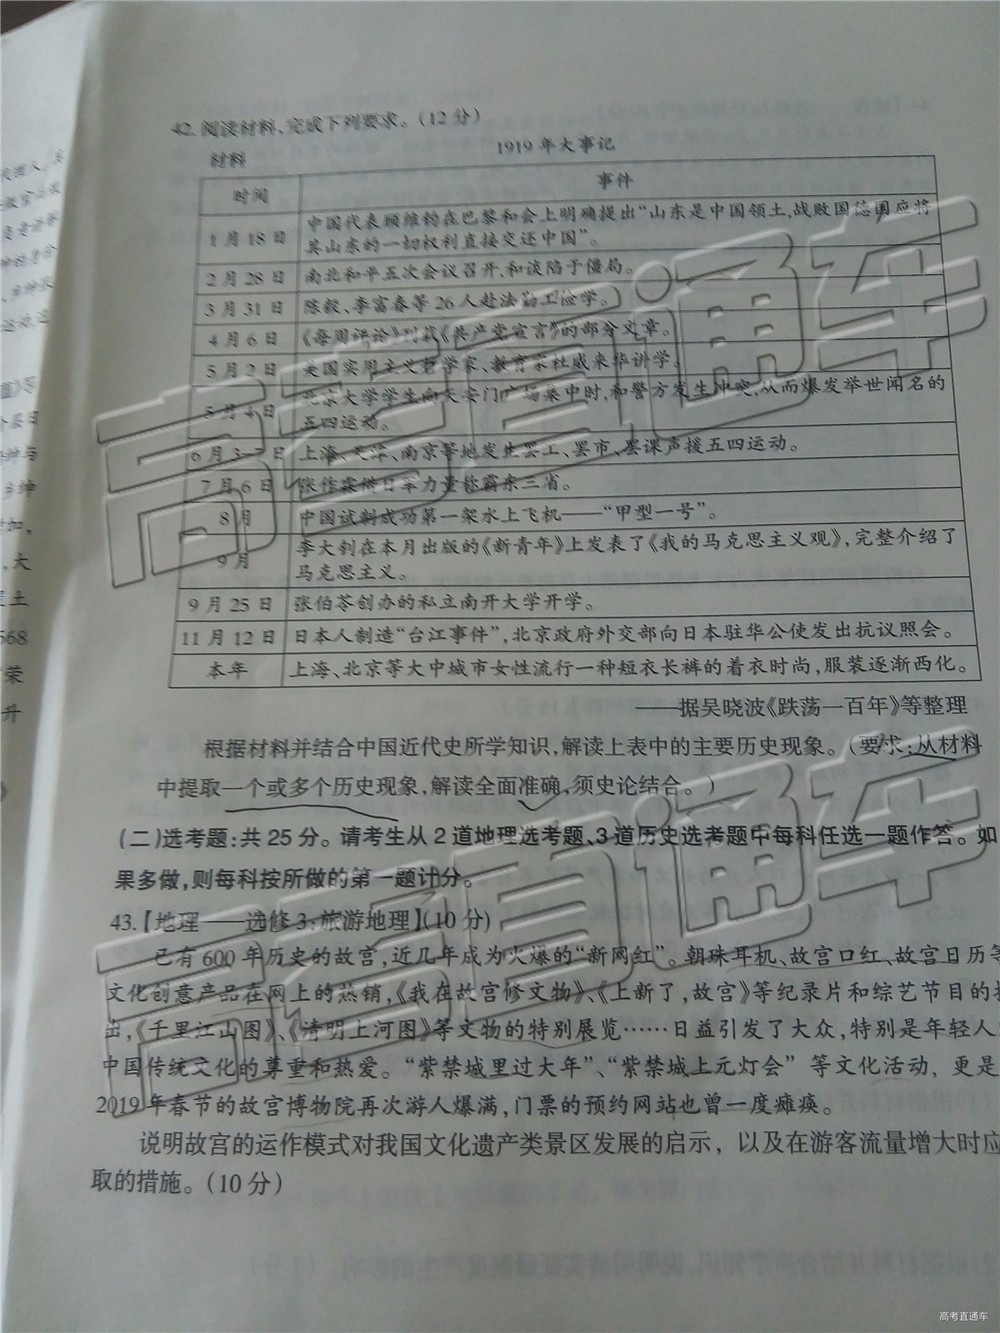 42. 阅读材料、完成下列要求。(12分)
材料
1919年大事记
时间 事件
1月18日 中国代表顾维钧在巴黎和会上明确提出“山东是中国领土,战败国德国应将
其山东的一切权利直接交还中国”。
2月28日 南北和平五次会议召开,和谈陷于僵局。
3月31日 陈毅、李富春等26人赴法勤工俭学。
4月6日 《每周评论》刊载《共产党宣言》的部分文章。
5月2日 美国实用主义哲学家、教育家杜威来华讲学。
5月4日 北京大学学生向天安门广场集中时,和警方发生冲突,从而爆发举世闻名的
五四运动。
6月3-7日 上海、天津、南京等地发生罢工、罢市、罢课声援五四运动。
7月6日 张作霖借日军力量称霸东三省。
8月 中国试制成功第一架水上飞机——“甲型一号”。
9月 李大钊在本月出版的《新青年》上发表了《我的马克思主义观》,完整介绍了
马克思主义。
9月25日 张伯苓创办的私立南开大学开学。
11月12日 日本人制造“台江事件”,北京政府外交部向日本驻华公使发出抗议照会。
本年 上海、北京等大中城市女性流行一种短衣长裤的着衣时尚,服装逐渐西化。
——据吴晓波《跌荡一百年》等整理
根据材料并结合中国近代史所学知识,解读上表中的主要历史现象。(要求:从材料
中提取一个或多个历史现象,解读全面准确,须史论结合。)
(二)选考题:共25分。请考生从2道地理选考题、3道历史选考题中每科任选一题作答。如
果多做,则每科按所做的第一题计分。
43.【地理——选修3:旅游地理】(10分)
已有600年历史的故宫,近几年成为火爆的“新网红”。朝珠耳机、故宫口红、故宫日历等
文化创意产品在网上的热销,《我在故宫修文物》、《上新了,故宫》等纪录片和综艺节目的
出,《千里江山图》、《清明上河图》等文物的特别展览……日益引发了大众,特别是年轻人
中国传统文化的尊重和热爱。“紫禁城里过大年”、“紫禁城上元灯会”等文化活动,更是
2019年春节的故宫博物院再次游人爆满,门票的预约网站也曾一度瘫痪。
说明故宫的运作模式对我国文化遗产类景区发展的启示,以及在游客流量增大时应
取的措施。(10分)
高考直通车
高考直通车
高考直通车